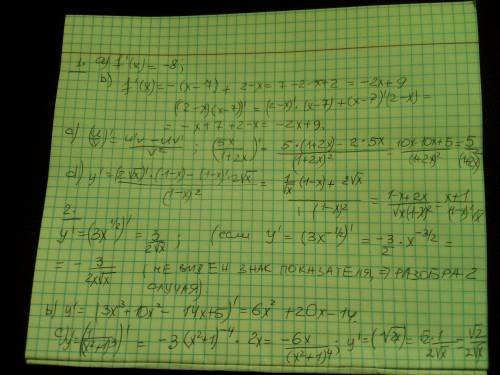 1. a) f'(x) = -8;
b) f'(x) = -(x-7) + 2-x = 7-2-x+2 = -2x+9
((2-x)(x-7))' = (2-x)'·(x-7) + (x-7)'(2-x) =
= -x+7+2-x = -2x+9.
c) (u/v)' = (u'v - uv')/v²; (5x/(1+2x))' = (5·(1+2x) - 2·5x)/(1+2x)² = (10x-10x+5)/(1+2x)² = 5/(1+2x)²
d) y' = ((2√x)'·(1-x) - (1-x)'·2√x)/(1-x)² = (1/√x (1-x) + 2√x)/(1-x)² = (1-x+2x)/(√x(1-x)²) = (x+1)/((1-x)²√x)
2.
y' = (3x^(1/2))' = 3/(2√x); (если y' = (3x^(-1/2))' = -3/2·x^(-3/2) =
= -3/(2x√x) (не виден знак показателя, => разобрал 2
случая).
b) y' = (3x³+10x²-14x+5)' = 6x²+20x-14
c) y' = (1/(x²+1)³)' = -3·(x²+1)^(-4)·2x = -6x/(x²+1)⁴; y' = (√2x)' = √2·1/(2√x) = √2/(2√x)